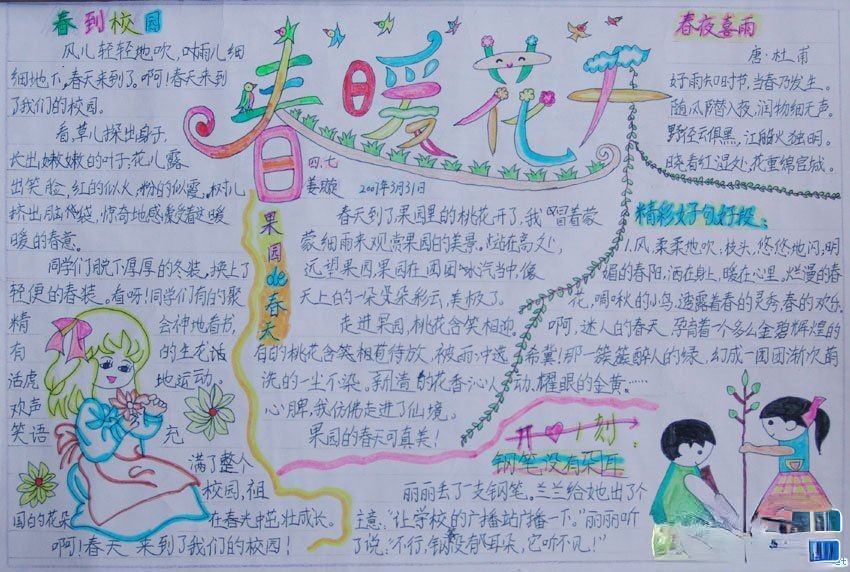 春到校园
风儿轻轻地吹,
细地下,春天来到了。啊!春天来到
了我们的校园。
看,草儿探出身子,
长出嫩嫩的叶子;花儿露
出笑脸,红的似火,粉的似霞。树儿
挤出脑袋,惊奇地感受着这暖
暖的春意。
同学们脱下厚厚的冬装,换上了
轻便的春装。看呀!同学们有的聚
精会神地看书,
有的生龙活
活虎地运动。
欢声
笑语充
满了整个
校园,祖
国的花朵在春光中茁壮成长。
啊!春天来到了我们的校园!
春暖花开
四.七
姜璇 2007年3月31日
果园de春天
春天到了果园里的桃花开了,我冒着蒙
蒙细雨来观赏果园的美景。站在高处,
远望果园,果园在团团水汽当中像
天上的一朵朵彩云,美极了。
走进果园,桃花含笑相迎。
有的桃花含笑相苞待放,被雨冲选
洗的一尘不染。桃花的花香沁人
心脾,我仿佛走进了仙境。
果园的春天可真美!
春夜喜雨
唐·杜甫
好雨知时节,当春乃发生。
随风潜入夜,润物细无声。
野径云俱黑,江船火独明。
晓看红湿处,花重锦官城。
精彩好句好段:
1.风,柔柔地吹,枝头,悠悠地闪;明
媚的春阳,洒在身上,暖在心里。烂漫的春
花,啁啾的小鸟,透露着春的灵秀,春的欢台。
啊,迷人的春天,孕育着一个多么金碧辉煌的
希冀!那一簇簇醉人的绿,幻成一团团渐次萌
动、耀眼的金黄。……
开心1刻:
钢笔没有朵耳
丽丽丢了一支钢笔。兰兰给她出了个
主意:"让学校的广播站广播一下。"丽丽听
了说:"不行,钢没有耳朵,它听不见!"